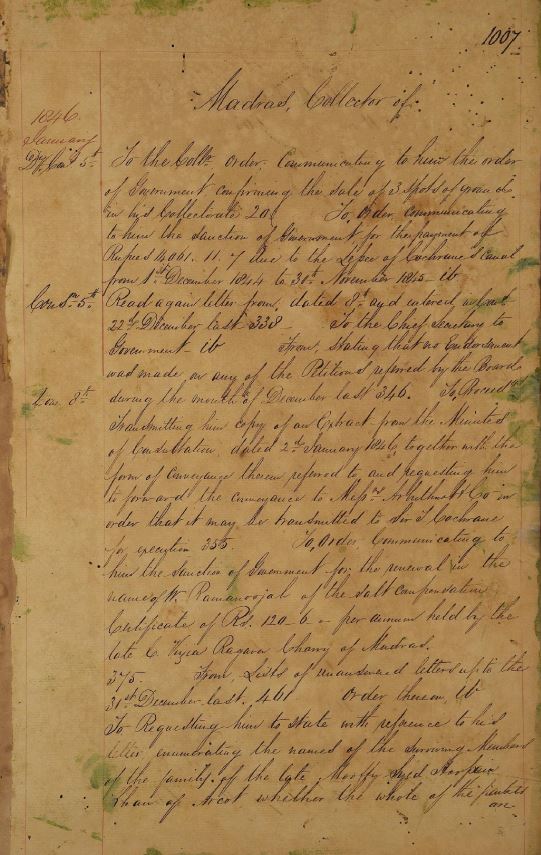 1007
Madras, Collector of
1846
January
5th To the Collr. Order. Communicating to him the order
of Government confirming the sale of 3 Spots of ground
in his Collectorate 20 To, Order, Communicating
to him the sanction of Government for the payment of
Rupees 14061. 11. 7 due to the Lessee of Cochrane's Canal
from 1st December 1844 to 30th November 1845 - ib
Consn. 5th Read again letter from, dated 8th and entered
22d December last 338 - To the Chief Secretary to
Government - ib From, Stating that no Endorsement
was made on any of the Petitions referred by the Board
8th during the month of December last 346. To, Proceedgs
Transmitting him copy of an Extract from the Minutes
of Consultation, dated 2d January 1846, together with the
form of conveyance therein referred to, and requesting him
to forward the conveyance to Messrs. Arbuthnot & Co in
order that it may be transmitted to Cochrane
for execution 355 To, Order, Communicating to
him the Sanction of Government for the renewal in the
name of Ramanoojal of the Salt compensation
Certificate of Rs. 120 - 6 - per annum held by the
late C. Ragava Charry of Madras.
375. From, Lists of unanswered letters up to the
31st December last. 461 Order thereon, ib
To Requesting him to state with reference to his
letter enumerating the names of the surviving Members
of the family of the late
Khan of Arcot whether the whole of the
are